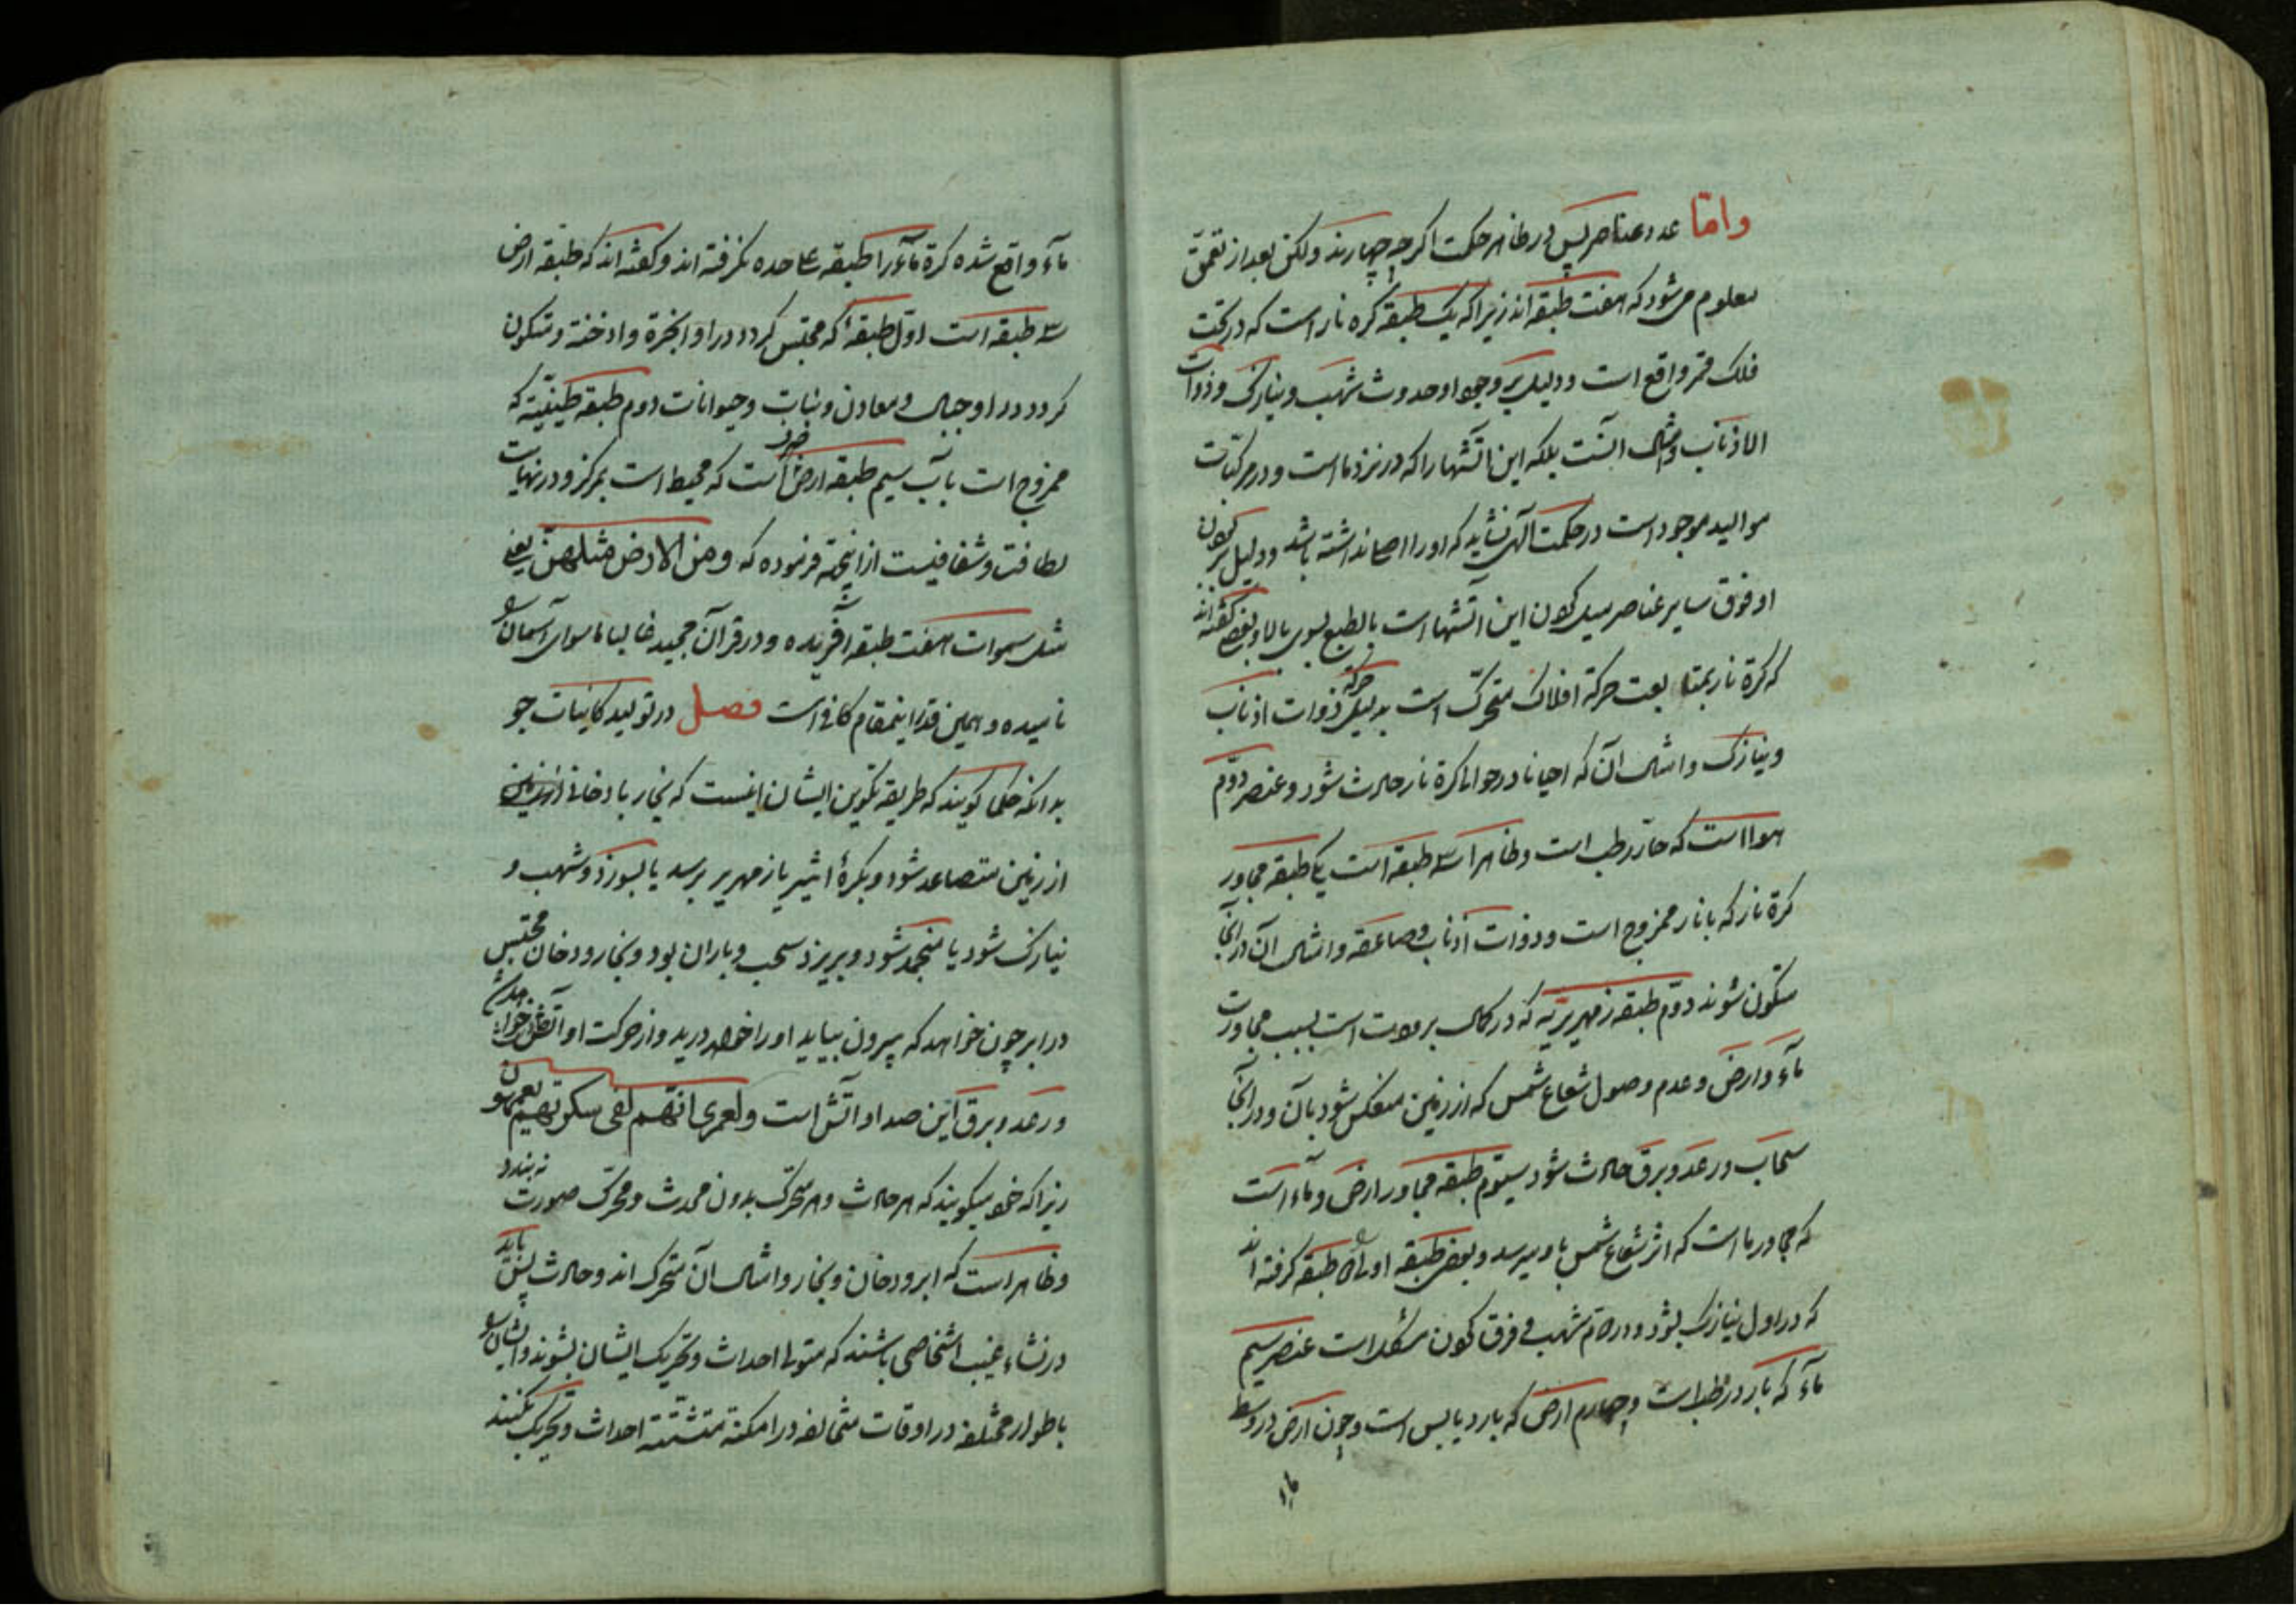 واما عدد عناصر پس در ظاهر حکمت اکرچه چهارند ولکن بعد از تعمق
معلوم میشود که هفت طبقه اند زیرا که یک طبقه کره نار است که در تحت
فلک قمر واقع است و دلیل بر وجود او حدوث شهب و نیازک و ذوات
الاذناب و امثال انست بلکه این اتشها را که در نزد ما است و در مرکبات
موالید موجود است در حکمت الهی نشاید که او را اصل نداشته باشد و دلیل بر کون
او فوق سایر عناصر میل کردن این اتشها است بالطبع بسوی بالا و بعضی کفته اند
که کرة نار بمتابعت حرکة افلاک متحرک است بدلیل حرکة ذوات اذناب
و نیازک و امثال آن که احیانا در حوالی کرة نار حادث شود و عنصر دوم
هوا است که حار رطب است و ظاهرا سه طبقه است یکی طبقه مجاور
کرة نار که با نار ممزوج است و ذوات اذناب و صاعقه و امثال آن در آنجا
متکون شوند دوم طبقه زمهریریه که در کمال برودت است بسبب مجاورت
ماء و ارض و عدم وصول شعاع شمس که از زمین منعکس شود بآن و در آنجا
سحاب و رعد و برق حادث شود سیوم طبقه مجاور ارض و ماء است
که مجاور ما است که اثر شعاع شمس باو میرسد و بعضی طبقه اولی را دو طبقه کرفته اند
که در اول نیازک بشود و در دوم شهب و فرق کردن مشکل است عنصر سیم
ماء که بارد رطب است و چهارم ارض که بارد یابس است و چون ارض در وسط
ماء
ماء واقع شده کرة ماء را طبقه علاحده نکرفته اند و کفته اند که طبقه ارض
سه طبقه است اول طبقه که محتبس کردد در او ابخرة و ادخنة و متکون
کردد در او جبال و معادن و نبات و حیوانات دوم طبقه طینیة که
ممزوج است بآب سیم طبقه ارض صرف است که محیط است بمرکز و در نهایت
لطافت و شفافیست از اینجهة فرموده که ومن الارض مثلهن یعنی
مثل سموات هفت طبقه آفریده و در قرآن مجید غالبا ماسوای آسمان را
نامیده و همین قدر اینمقام کافی است فصل در تولید کاینات جو
بدانکه حکما کویند که طریقه تکوین ایشان اینست که بخار یا دخانی
از زمین متصاعد شود و بکرهٔ اثیر یا زمهریر برسد یا بسوزد و شهب و
نیازک شود یا منجمد شود و بریزد سحب و باران بود و بخار و دخان محتبس
در ابر چون خواهد که بیرون بیاید او را خواهد درید و از حرکت او آتش
و رعد و برق این صدا و اتش است ولعمری انهم لفی سکرتهم یعمهون
زیرا که خود میکویند که هر حادث و هر متحرک بدون محدث و محرک صورت نه بندد
و ظاهر است که ابر و دخان و بخار و امثال آن متحرک اند و حادث پس باید
در نشاء غیب اشخاصی باشند که متولی احداث و تحریک ایشان بشوند و ایشان را
باطوار مختلفه در اوقات متخالفه در امکنة متشتته احداث و تحریک بکنند